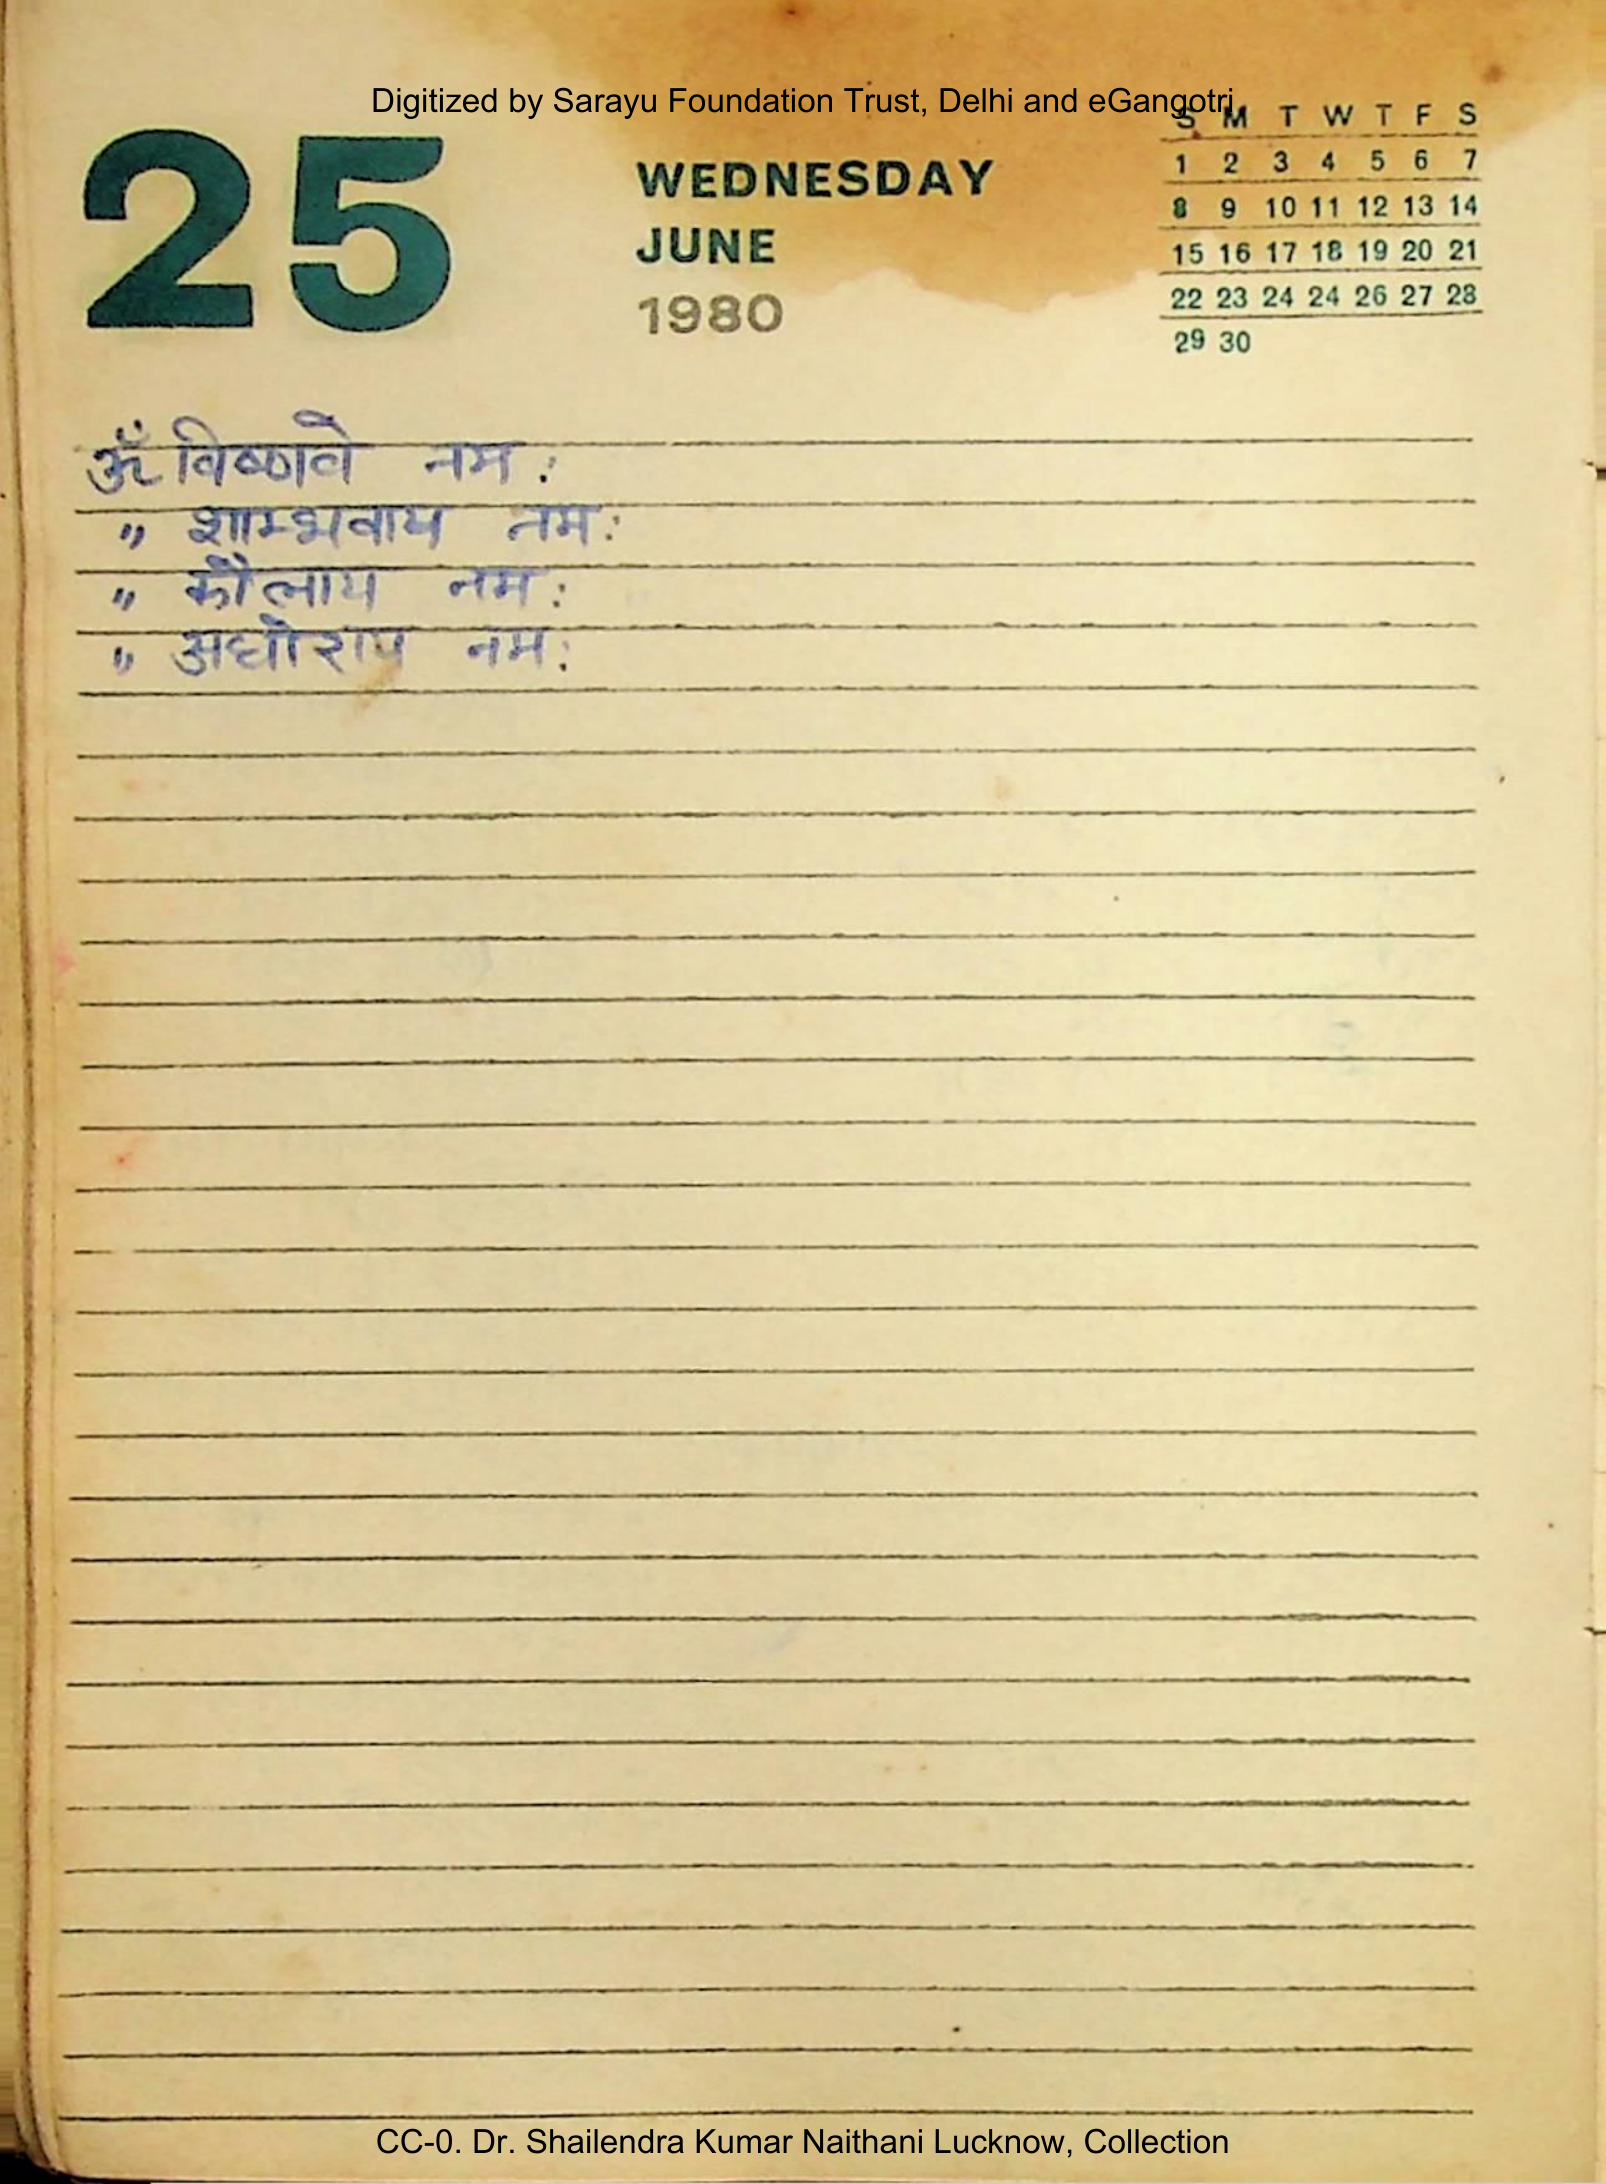 Digitized by Sarayu Foundation Trust, Delhi and eGangotri
25
WEDNESDAY
JUNE
1980
S M T W T F S
1 2 3 4 5 6 7
8 9 10 11 12 13 14
15 16 17 18 19 20 21
22 23 24 24 26 27 28
29 30
ॐ विष्णवे नम:
" शाम्भवाय नम:
" कौलाय नम:
" अघोराय नम:
CC-0. Dr. Shailendra Kumar Naithani Lucknow, Collection